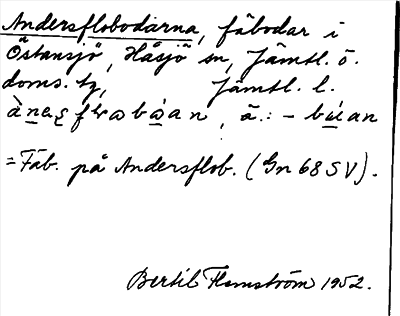 Andersflobodarna, fäbodar i
Östansjö, Håsjö sn, Jämtl. ö.
doms. tg, Jämtl. l.
= Fäb. på Andersflob. (Gn 68 SV).
Bertil Flemström 1952.